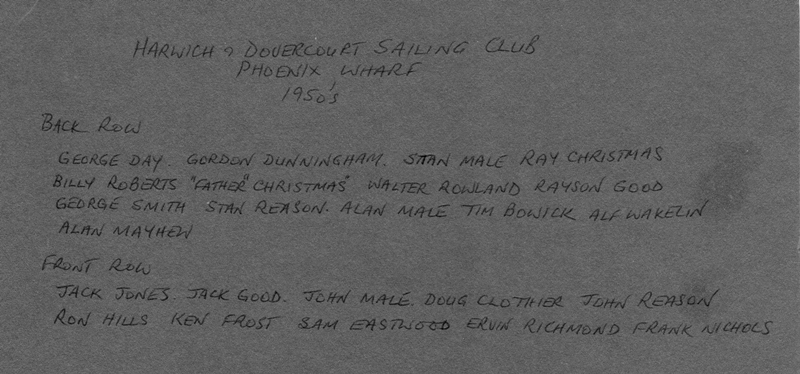 HARWICH & DOVERCOURT SAILING CLUB
PHOENIX WHARF
1950's
BACK ROW
GEORGE DAY. GORDON DUNNINGHAM. STAN MALE RAY CHRISTMAS
BILLY ROBERTS "FATHER" CHRISTMAS" WALTER ROWLAND RAYSON GOOD
GEORGE SMITH STAN REASON. ALAN MALE TIM BOWICK ALF WAKELIN
ALAN MAYHEW
FRONT ROW
JACK JONES. JACK GOOD. JOHN MALE. DOUG CLOTHIER JOHN REASON
RON HILLS KEN FROST SAM EASTWOOD ERVIN RICHMOND FRANK NICHOLS